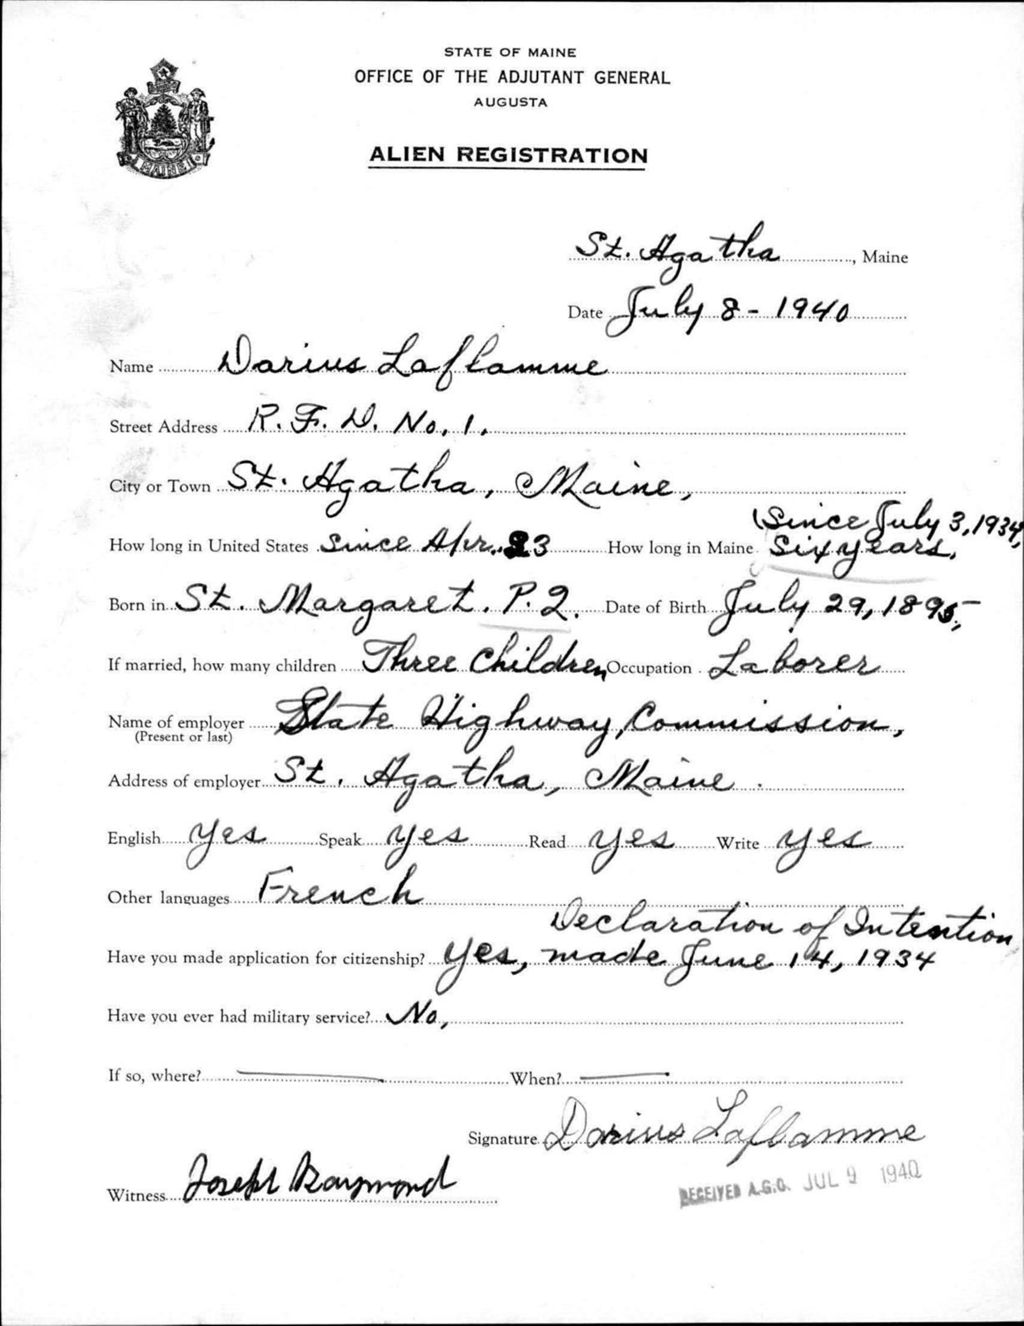 STATE OF MAINE
OFFICE OF THE ADJUTANT GENERAL
AUGUSTA
ALIEN REGISTRATION
MAINE
St. Agatha, Maine
Date July 8 - 1940
Name Darius Laflamme
Street Address R. F. D. No. 1.
City or Town St. Agatha, Maine,
(Since July 3, 1934,
How long in United States Since Apr. 23 How long in Maine Six years.
Born in St. Margaret. P. Q. Date of Birth July 29, 1895,
If married, how many children Three Children Occupation Laborer
Name of employer State Highway, Commission,
(Present or last)
Address of employer St. Agatha, Maine.
English yes Speak yes Read yes Write yes
Other languages French
Declaration of Intention
Have you made application for citizenship? Yes, made June 14, 1934
Have you ever had military service? No,
If so, where? When?
Signature Darius Laflamme
Witness Joseph Raymond
RECEIVED A.G.O. JUL 9 1940